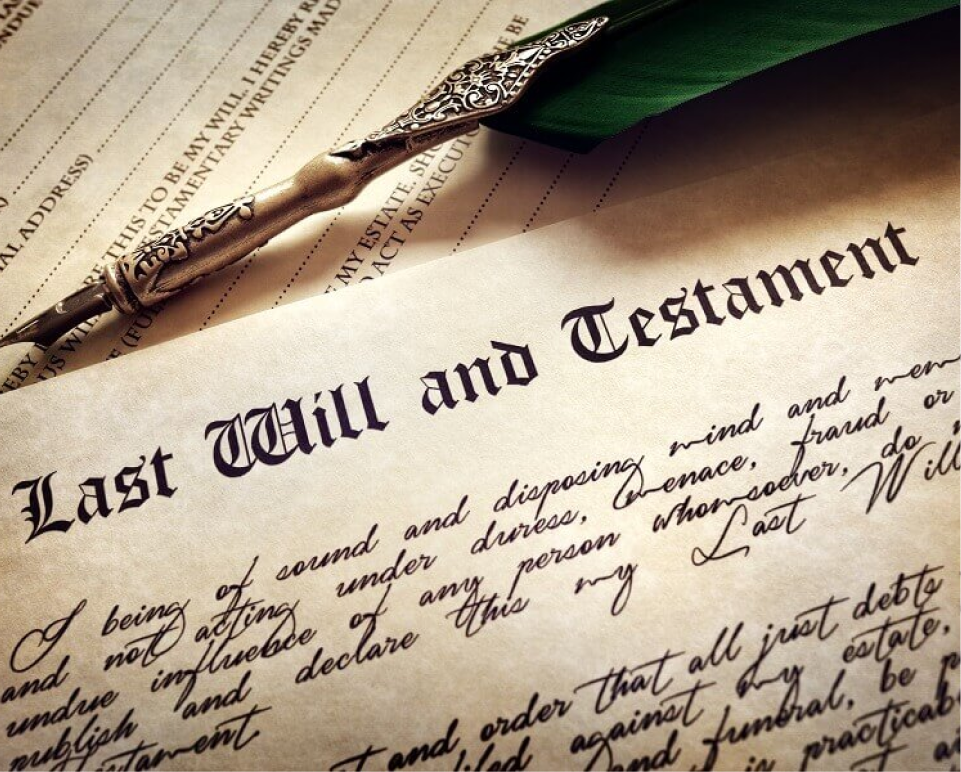 AL ADDRESS)
THIS TO BE MY WILL. I HEREBY
TAMENTARY WRITINGS MAD
BE
MY ESTATE. SHO
O ACT AS EXECUTO
Last Will and Testament
I being of sound and disposing mind and mem
and not acting under duress, menace, fraud or
undue influence of any person whomsoever, do
publish and declare this my Last Will
Testament
and order that all just debts
against my estate,
and funeral, be p
is practicab